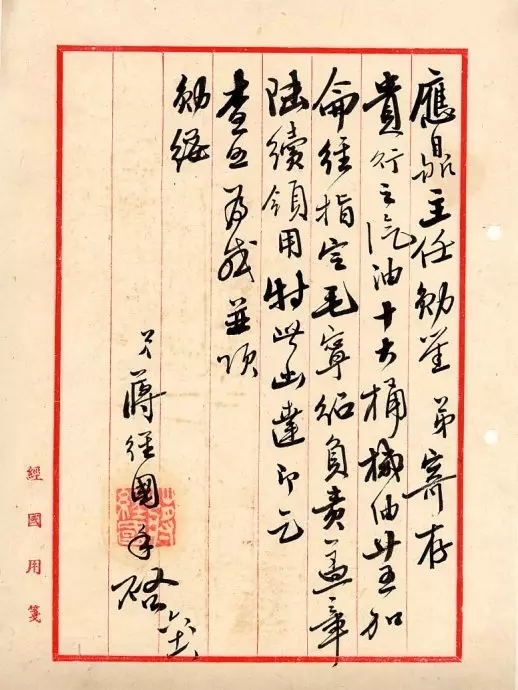 應鼎主任勛鑒 弟寄存
貴行之汽油十大桶機油廿五加
侖經指定毛寧紹負責蓋章
陸續領用特此函達即乞
查照為感並頌
勛綏
弟蔣經國手啟
經國用箋